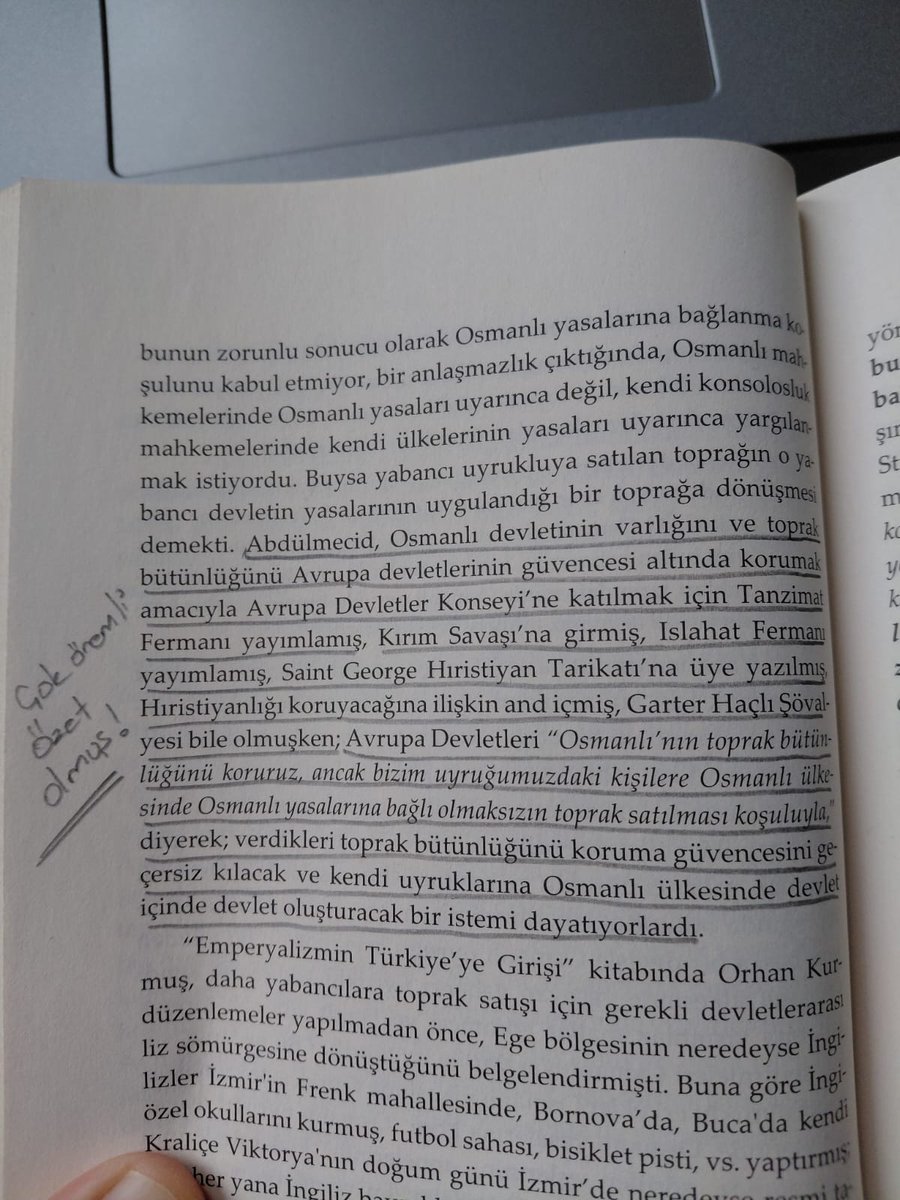 bunun zorunlu sonucu olarak Osmanlı yasalarına bağlanma ko-
şulunu kabul etmiyor, bir anlaşmazlık çıktığında, Osmanlı mah-
kemelerinde Osmanlı yasaları uyarınca değil, kendi konsolosluk
mahkemelerinde kendi ülkelerinin yasaları uyarınca yargılan-
mak istiyordu. Buysa yabancı uyrukluya satılan toprağın o ya-
bancı devletin yasalarının uygulandığı bir toprağa dönüşmesi
demekti. Abdülmecid, Osmanlı devletinin varlığını ve toprak
bütünlüğünü Avrupa devletlerinin güvencesi altında korumak
amacıyla Avrupa Devletler Konseyi'ne katılmak için Tanzimat
Fermanı yayımlamış, Kırım Savaşı'na girmiş, Islahat Fermanı
yayımlamış, Saint George Hıristiyan Tarikatı'na üye yazılmış,
Hıristiyanlığı koruyacağına ilişkin and içmiş, Garter Haçlı Şöval-
yesi bile olmuşken; Avrupa Devletleri "Osmanlı'nın toprak bütün-
lüğünü koruruz, ancak bizim uyruğumuzdaki kişilere Osmanlı ülke-
sinde Osmanlı yasalarına bağlı olmaksızın toprak satılması koşuluyla,"
diyerek; verdikleri toprak bütünlüğünü koruma güvencesini ge-
çersiz kılacak ve kendi uyruklarına Osmanlı ülkesinde devlet
içinde devlet oluşturacak bir istemi dayatıyorlardı.
"Emperyalizmin Türkiye'ye Girişi" kitabında Orhan Kur-
muş, daha yabancılara toprak satışı için gerekli devletlerarası
düzenlemeler yapılmadan önce, Ege bölgesinin neredeyse İngi-
liz sömürgesine dönüştüğünü belgelendirmişti. Buna göre İngi-
lizler İzmir'in Frenk mahallesinde, Bornova'da, Buca'da kendi
özel okullarını kurmuş, futbol sahası, bisiklet pisti, vs. yaptırmış;
Kraliçe Viktorya'nın doğum günü İzmir'de neredeyse
her yana İngiliz
Çok önemli
özet
olmuş!
yön
bu
ba
şın
St
m